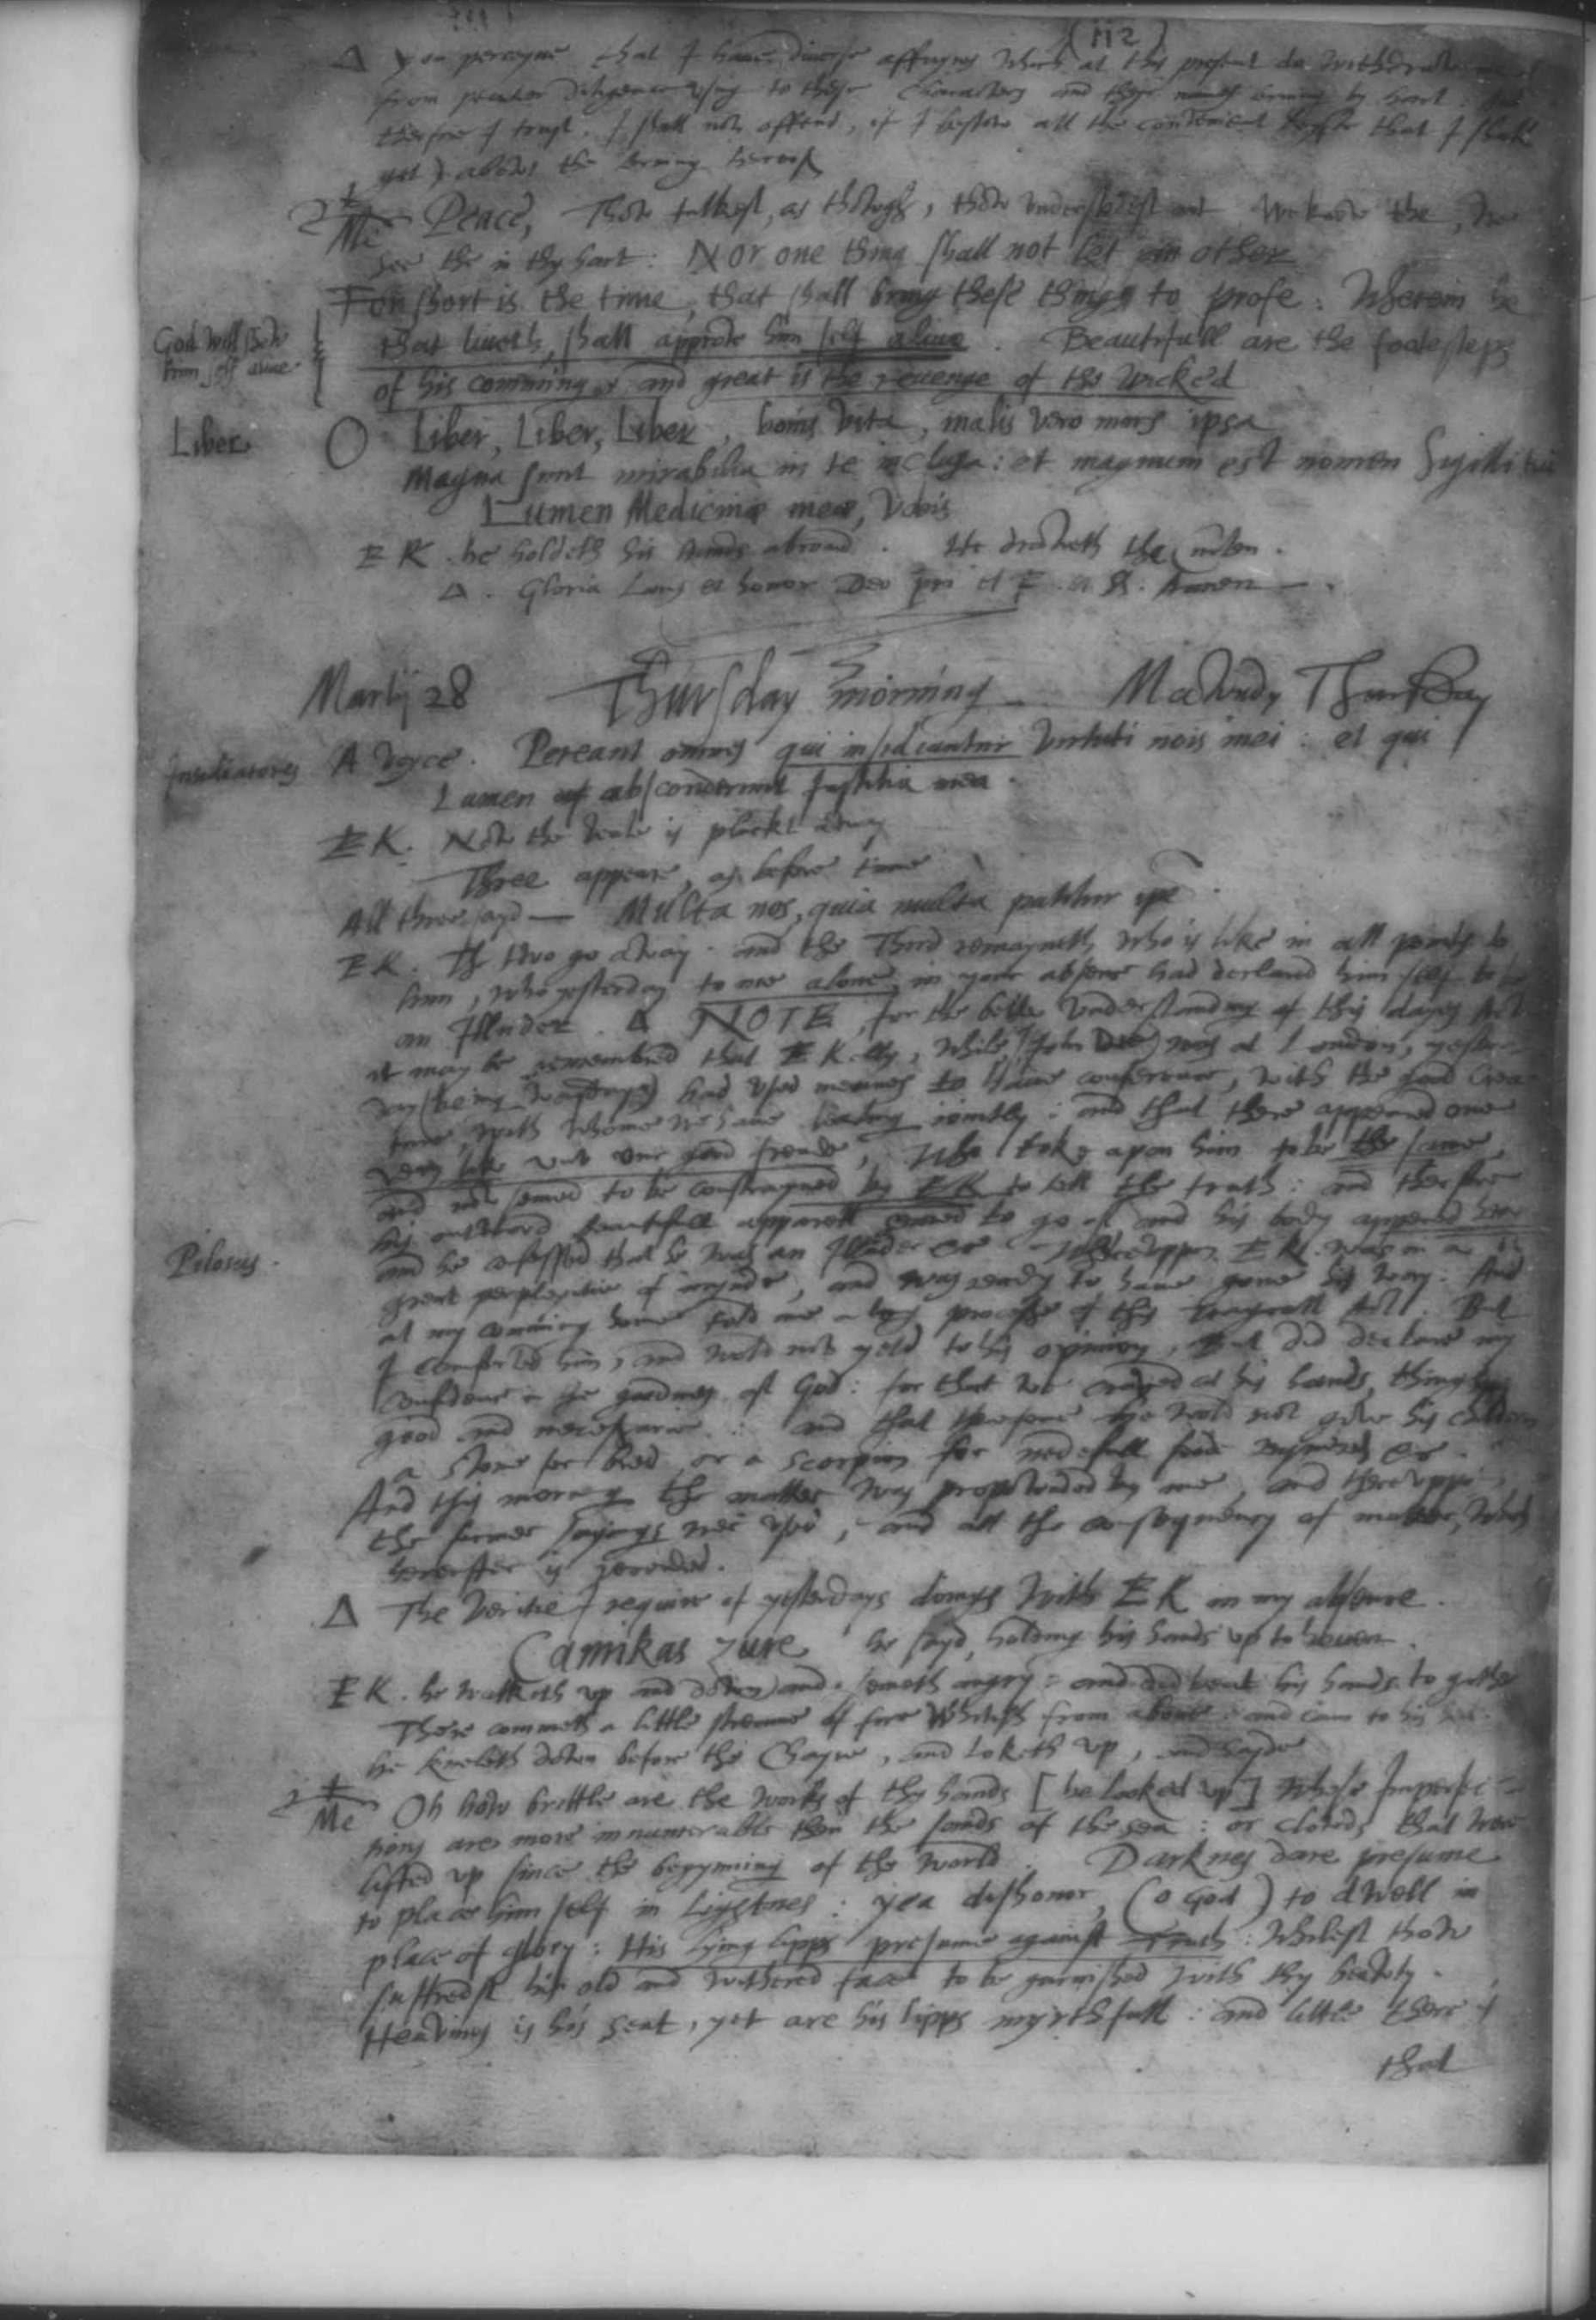 (112)
Δ you perceyue that I haue diuerse affayres which at this present do withdraw
from peculier diligence vsing to these Characters and theyr names lerning by hart: And
therfore I trust, I shall not offend, if I bestow all the convenient leysor that I shall
get, abowt the lerning hereof
Me Peace, Thow talkest, as thowgh, thow vnderstodest not We know the, We
see the in thy hart: Nor one thing shall not let an other
For short is the time, that shall bring these things to profe: Wherein he
God will shew
him self aliue.
that liueth, shall approve him self aliue. Beautifull are the footesteps
of his comming, and great is the reuenge of the wicked
Liber
O Liber, Liber, Liber, bonis vita, malis vero mors ipsa
Magna sunt mirabilia in te inclusa: et magnum est nomen Sigilli tui
Lumen Medicinæ meæ, Vobis
EK. he holdeth his hands abroad. He draweth the curten.
Δ. Gloria Laus et honor Deo pri et F. et S. Amen
Martij 28 Thursday morning Mawndy Thursday
Insidiatores
A Voyce. Pereant omnes qui insidiantur Virtuti nois mei: et qui
Lumen absconderunt Justitiæ meæ.
EK. Now the veale is pluckt away
Three appeare, as before time
All three sayd — Multa nos, quia multa patitur ipe
EK. Th two go away. and the Third remayneth, who is like in all points to
him, who yesterday to me alone, in your absence had declared him self to be
an Illuder. Δ NOTE, for the better vnderstanding of this dayes Act
it may be remembred that E Kelly, while I (John Dee) was at London, yester-
day (being wensday) had vsed meanes to haue conference, with the good Crea-
tures, with whome we haue dealing iointly: and that there appeared one
very like vnto our good freende, who toke apon him to be the same,
and now semed to be constrayned by EK to tell the truth: and therfore
his outward beautifull apparell semed to go of, and his body appered hery
Pilosus.
and he confessed that he was an Illuder &c Wheruppon EK was in a
great perplexitie of mynde, and was ready to haue gone his way. And
at my comming home told me a long processe of this Tragicall Act. But
I comforted him, and wold not yeld to his opinion, But did declare my
confidence in the goodnes of God: for that we craued at his hands, things
good and necessarie: and that therfore he wold not giue his childern
a stone for bred, or a scorpion for nedefull foode required &c.
And this morning the matter was propownded by me, and therevppon
the former sayings were vsed, and all the consequences of matter, which
hereafter is recorded.
Δ The veritie I require of yesterdays doings with EK in my absence.
Camikas zure he sayd, holding his hands vp to heuen.
EK. he walketh vp and down and semeth angry: and did beat his hands to gither
There commeth a little streame of fire whitish from aboue: and cam to his hed.
he kneleth down before the Chayre, and loketh vp, and sayde
Me Oh how brittle are the works of thy hands [he looked vp] whose Imperfec-
tions are more innumerable then the sands of the sea: or clowds that were
lifted vp since the begynning of the world. Darknes dare presume
to place him self in Lightnes: yea dishonor, (o God) to dwell in
place of glory: His lying lipps presume against Truth: whilest thow
suffredst his old and withered face to be garnished with thy beawty.
Heavines is his seat, yet are his lipps myrthfull: and little there is
that